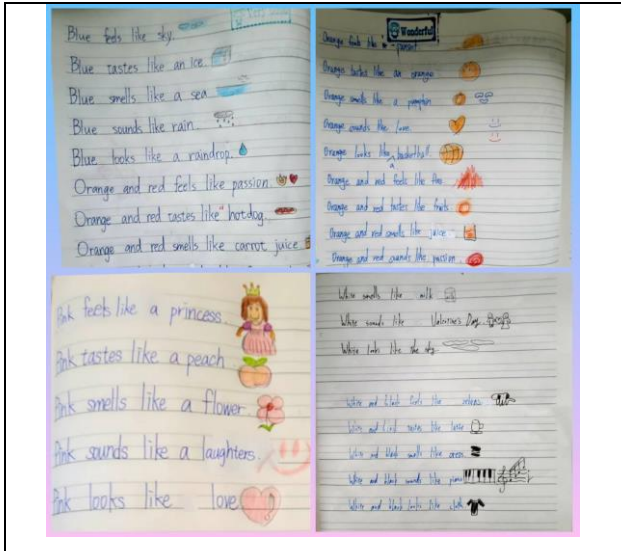 Blue feels like sky.
Blue tastes like an ice.
Blue smells like a sea
Blue sounds like rain.
Blue looks like a raindrop.
Orange and red feels like passion.
Orange and red tastes like hotdog.
Orange and red smells like carrot juice
Wonderful
Orange feels like sunset
Orange tastes like an orange
Orange smells like a pumpkin
Orange sounds like love.
Orange looks like a basketball.
Orange and red feels like fire.
Orange and red tastes like fruits.
Orange and red smells like juice
Orange and red sounds like passion
Pink feels like a princess.
Pink tastes like a peach
Pink smells like a flower
Pink sounds like a laughters.
Pink looks like love
White smells like milk
White sounds like Valentine's Day.
White looks like the sky
White and black feels like
White and black tastes like
White and black smells like oreo.
White and black sounds like piano
White and black looks like cloth